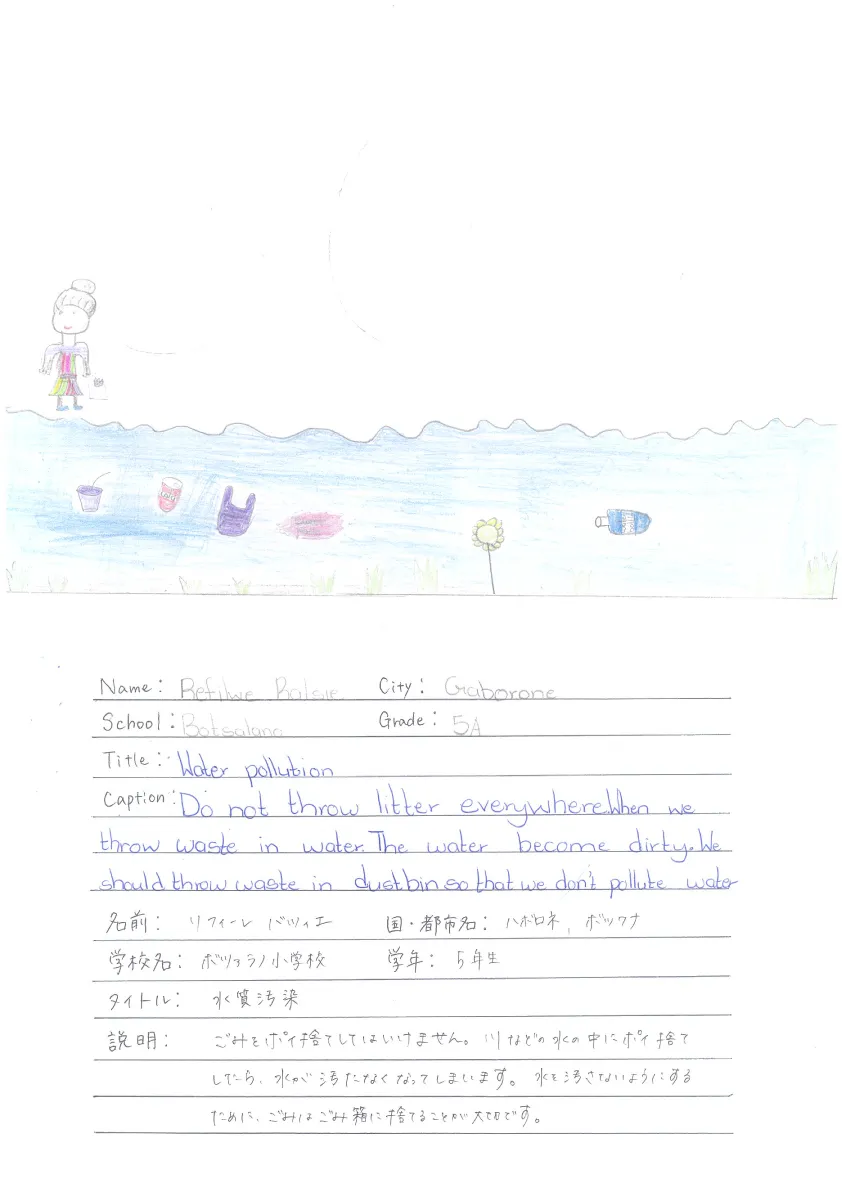 Name: Refilwe Ratsie City: Gaborone
School: Botsalano Grade: 5A
Title: Water pollution
Caption: Do not throw litter everywhere. When we
throw waste in water. The water become dirty. We
should throw waste in dustbin so that we don't pollute water
名前: リフィーレ バツィエ 国・都市名: ハボロネ, ボツワナ
学校名: ボツァラノ小学校 学年: 5年生
タイトル: 水質汚染
説明: ごみをポイ捨てしてはいけません。川などの水の中にポイ捨て
したら、水が汚たなくなってしまいます。水を汚さないようにする
ために、ごみはごみ箱に捨てることが大切です。